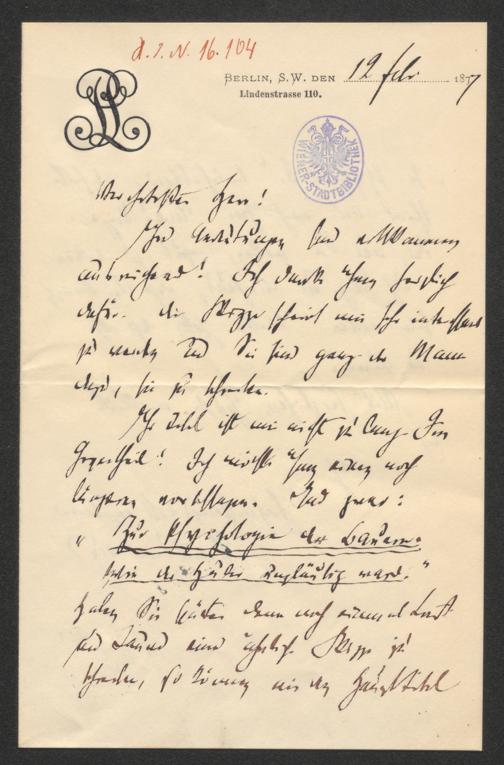 A. I. N. 16.104
BERLIN, S.W. DEN 12 Feb 1877
Lindenstrasse 110.
PL
WIENER-STADTBIBLIOTHEK
Verehrtester Herr!
Ihre Andeutungen sind vollkommen
ausreichend! Ich danke Ihnen herzlich
dafür. Die Skizze scheint mir sehr interessant
zu werden und Sie sind ganz der Mann
dazu, sie zu schreiben.
Ihr Titel ist mir nicht zu lang. Im
Gegentheil! Ich möchte Ihnen einen noch
längeren vorschlagen. Und zwar:
„Zur Psychologie der Bauern.
Wie der Huber ungläubig ward."
Haben Sie später dann noch einmal Lust
und Laune eine ähnliche Skizze zu
schreiben, so können wir den Haupttitel